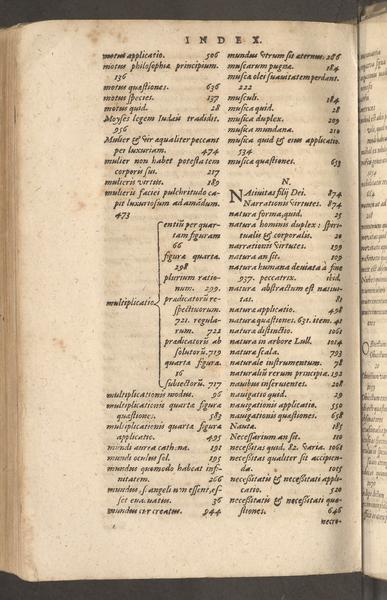 INDEX.
motus applicatio. 506
motus philosophiæ principium.
136
motus quæstiones. 636
motus species. 137
motus quid. 28
Moyses legem Iudæis tradidit.
956
Mulier & vir æqualiter peccant
per luxuriam. 474
mulier non habet potestatem
corporis sui. 217
mulieris virtus. 189
mulieris faciei pulchritudo ca-
pit luxuriosum ad amādum.
473
multiplicatio
entiū per quar-
tam figuram
66
figuræ quartæ.
298
plurium ratio-
num. 299.
prædicatorū re-
spectiuorum.
721. regula-
rum. 722
prædicatorū ab
solutorū. 719
quartæ figuræ.
16
subiectorū. 717
multiplicationis modus. 96
multiplicationis quarta figura
quæstiones. 583
multiplicationis quarta figura
applicatio. 495
mundi aurea cathena. 191
mundi oculus sol. 195
mundus quomodo habeat infi-
nitatem. 266
mundus, si angeli non essent, es-
set euacuatus. 36
mundus cur creatus. 944
mundus vtrum sit æternus. 266
muscarum pugna. 184
muscæ olei suauitatem perdant.
222
musculi. 184
musica quid. 28
musica duplex. 209
musica mundana. 210
musica quid & eius applicatio.
534
musicæ quæstiones. 653
N.
NAtiuitas filij Dei. 874
Narrationis virtutes. 874
natura forma, quid. 25
natura hominis duplex: spiri-
tualis & corporalis. 20
narrationis virtutes. 199
natura an sit. 109
natura humana deuiata à fine
957. peccatrix. ibid.
natura abstractum est natiui-
tas. 81
naturæ applicatio. 498
naturæ quæstiones. 631. item. 41
natura distinctio. 1061
natura in arbore Lull. 1014
naturæ scala. 793
naturale instrumentum. 78
naturaliū rerum principia. 192
nauibus inseruientes. 208
nauigatio quid. 29
nauigationis applicatio. 550
nauigationis quæstiones. 658
Nauta. 185
Necessarium an sit. 110
necessitas quid. 82. varia. 1061
necessitas qualiter sit accipien-
da. 1015
necessitatis & necessitati appli-
catio. 520
necessitatis & necessitati quæ-
stiones. 646
necro-